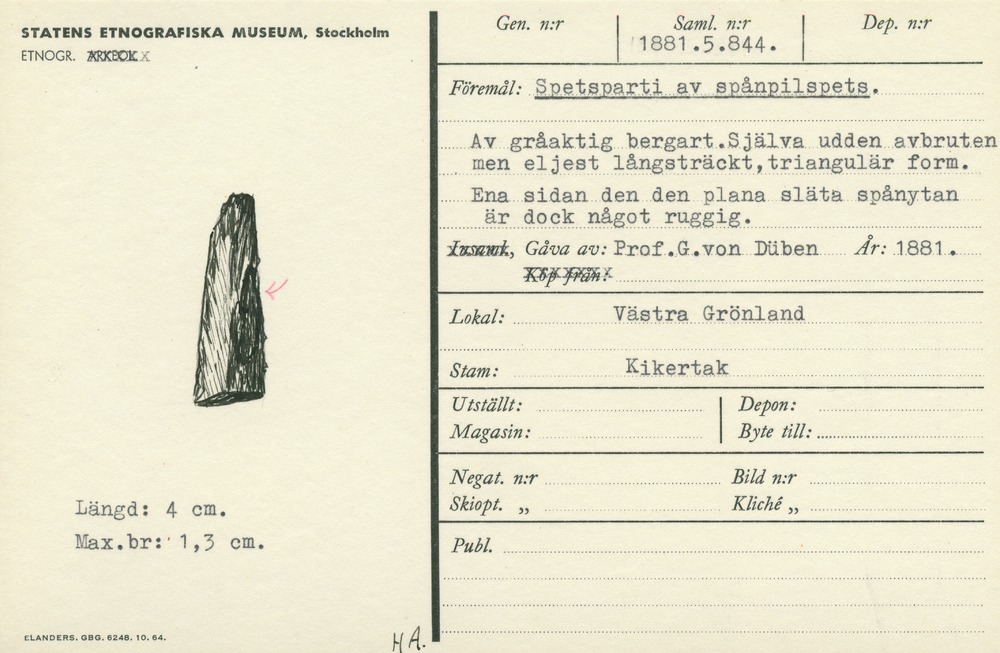 STATENS ETNOGRAFISKA MUSEUM, Stockholm
ETNOGR. ARKEOL.
Längd: 4 cm.
Max.br: 1,3 cm.
ELANDERS. GBG. 6248. 10. 64.
HA.
Gen. n:r Saml. n:r Dep. n:r
1881.5.844.
Föremål: Spetsparti av spånpilspets.
Av gråaktig bergart.Själva udden avbruten
men eljest långsträckt,triangulär form.
Ena sidan den den plana släta spånytan
är dock något ruggig.
Insaml., Gåva av: Prof.G.von Düben År: 1881.
Köp från:
Lokal: Västra Grönland
Stam: Kikertak
Utställt: Depon:
Magasin: Byte till:
Negat. n:r Bild n:r
Skiopt. „ Kliché „
Publ.